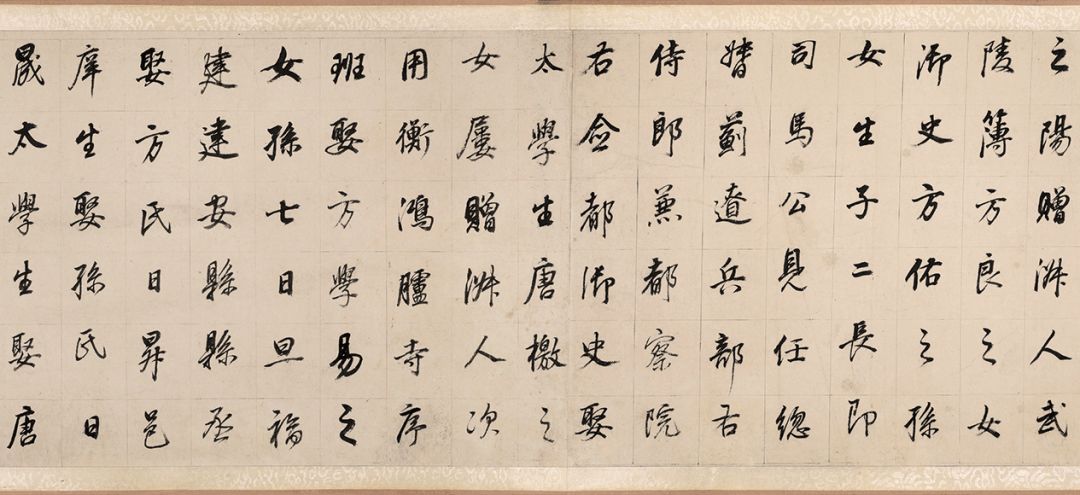 之陽贈淋人武
陵簿方良之女
御史方佑之孫
女生子二長即
司馬公見任總
督薊遼兵部右
侍郎兼都察院
右僉都御史娶
太學生唐檄之
女屢贈淋人次
用衡鴻臚寺序
班娶方學易之
女孫七日旦福
建建安縣縣丞
娶方氏日昇邑
庠生娶孫氏日
晟太學生娶唐